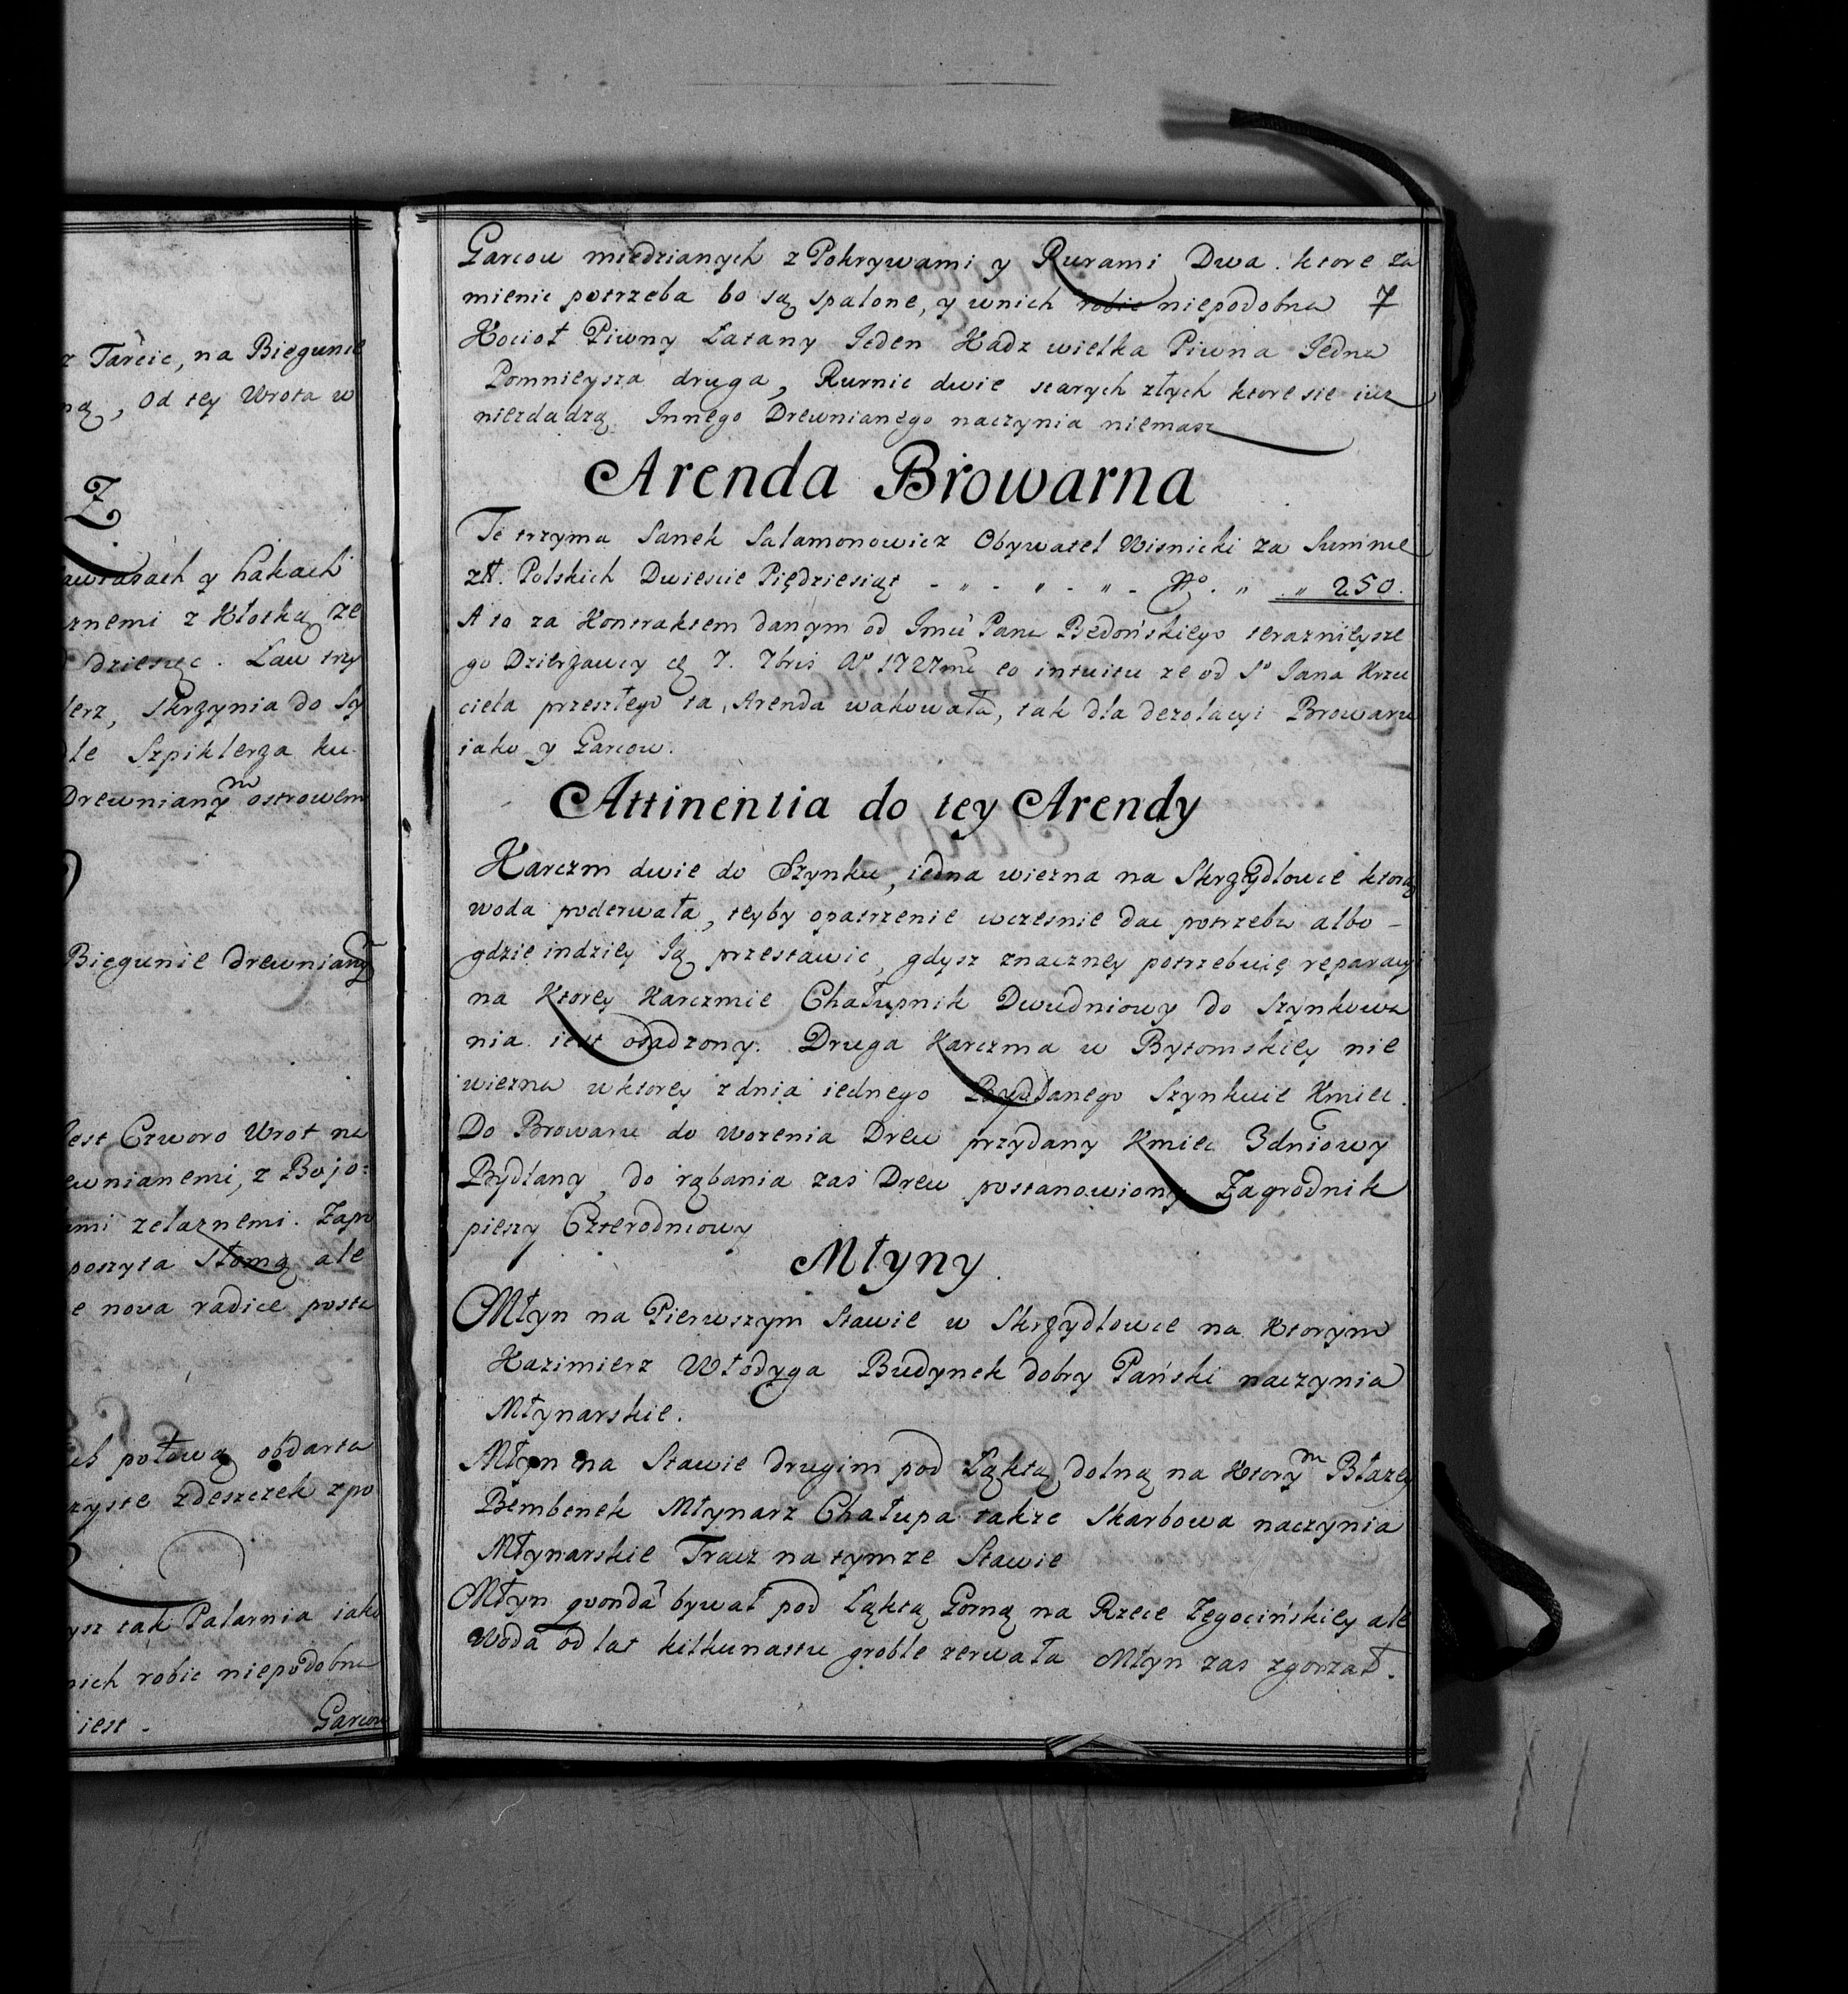 z Tarcic, na Biegunie
ną, Od tey Wrota w
Z
zawiasach y hakach
znemi z Klotką ze
dziesięc. Law trzy
lerz, Skrzynia do Sy
dle Szpiklerza ku
Drewnianym ostrowem
Biegunie drewnianym
Jest Czworo Wrot na
ewnianemi, z Bojo=
ami zelaznemi. Zapo
poszyta Słomą ale
e nova radice posta
połową obdarta
zyste zdeszczek zpo
ysz tak Palarnia iako
nich robic niepodobna
iest -
Garcow
Garcow miedzianych z Pokrywami y Rurami Dwa. ktore za
mienic potrzeba bo są spalone, y wnich robic niepodobna 7
Kocioł Piwny Łatany Jeden Kadz wielka Piwna Jedna
Pomnieysza druga, Rurnic dwie starych złych ktore sie iuz
niezdadzą. Innego Drewnianego naczynia niemasz
Arenda Browarna
Te trzyma Sanek Salamonowicz Obywatel Wisnicki za Summe
złł. Polskich Dwiescie Piędziesiąt - " - " - " - " 250.
A to za Kontraktem danym od Jmci Pana Bedońskiego teraznieysze
go Dzierzawcy 7. 7bris Ao 1727mo eo intuitu ze od So Jana Krzci
ciela przeszłego ta Arenda wakowała, tak dla dezolacyi Browaru
iako y Garcow.
Attinentia do tey Arendy
Karczm dwie do Szynku, iedna wiezna na Skrzydlowce ktorą
woda poderwała, teyby opatrzenie wczesnie dac potrzeba albo -
gdzie indziey Ią przestawic, gdysz znaczney potrzebuię reparacyi
na Ktorey Karczmie Chałupnik Dwudniowy do Szynkowa
nia iest osadzony. Druga Karczma w Bytomskiey nie
wiezna wktorey zdnia iednego Bydlanego Szynkuie Kmiec.
Do Browaru do wozenia Drew przydany Kmiec 3dniowy
Bydlany, do rąbania zas Drew postanowiony Zagrodnik
pieszy Czterodniowy
Młyny.
Młyn na Pierwszym Stawie w Skrzydlowce na Ktorym
Kazimierz Włodyga Budynek dobry Pański naczynia
Młynarskie.
Młyn na Stawie drugim pod Ląktą dolną na Ktorym Błazey
Bembenek Młynarz Chałupa takze Skarbowa naczynia
Młynarskie Tracz na tymze Stawie
Młyn quondã bywał pod Ląktą Gorną na Rzece Zegocińskiey ale
Woda od lat kilkunastu groble zerwała Młyn zas zgorzał.